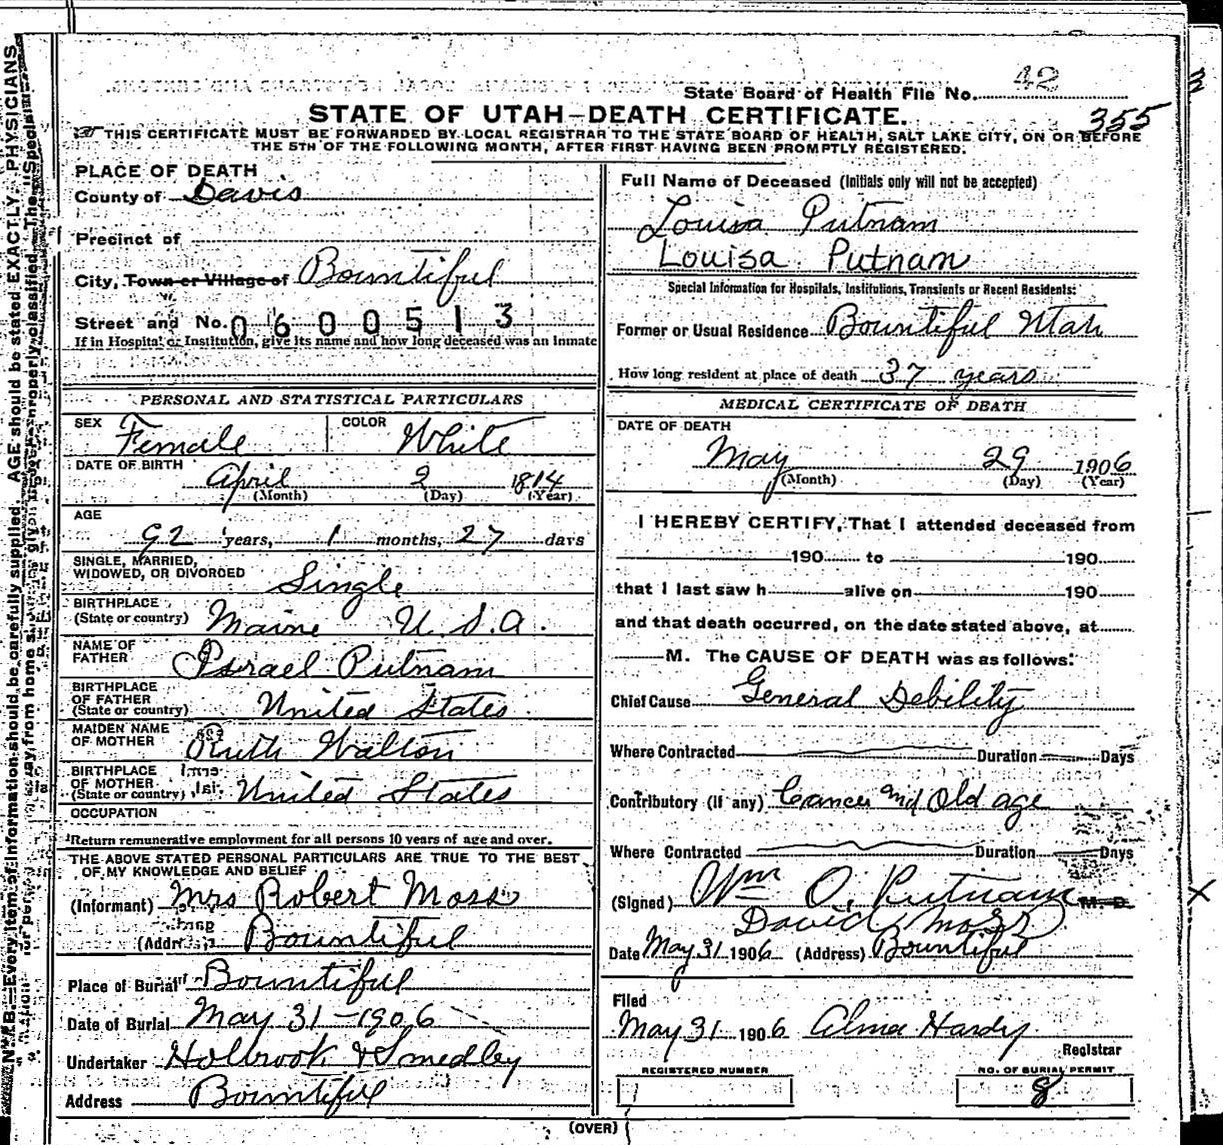 State Board of Health File No. 42
355
STATE OF UTAH—DEATH CERTIFICATE.
THIS CERTIFICATE MUST BE FORWARDED BY LOCAL REGISTRAR TO THE STATE BOARD OF HEALTH, SALT LAKE CITY, ON OR BEFORE
THE 5TH OF THE FOLLOWING MONTH, AFTER FIRST HAVING BEEN PROMPTLY REGISTERED.
PLACE OF DEATH
County of Davis
Precinct of
City, Town or Village of Bountiful
Street and No. 0600513
If in Hospital or Institution, give its name and how long deceased was an Inmate
Full Name of Deceased (Initials only will not be accepted)
Louisa Putnam
Louisa Putnam
Special Information for Hospitals, Institutions, Transients or Recent Residents:
Former or Usual Residence Bountiful Utah
How long resident at place of death 37 years
PERSONAL AND STATISTICAL PARTICULARS
SEX Female COLOR White
DATE OF BIRTH
April 2 1814
(Month) (Day) (Year)
AGE
92 years, 1 months, 27 days
SINGLE, MARRIED,
WIDOWED, OR DIVORCED Single
BIRTHPLACE
(State or country) Maine U.S.A.
NAME OF
FATHER Israel Putnam
BIRTHPLACE
OF FATHER
(State or country) United States
MAIDEN NAME
OF MOTHER Ruth Walton
BIRTHPLACE
OF MOTHER
(State or country) United States
OCCUPATION
Return remunerative employment for all persons 10 years of age and over.
THE ABOVE STATED PERSONAL PARTICULARS ARE TRUE TO THE BEST
OF MY KNOWLEDGE AND BELIEF
(Informant) Mrs Robert Moss
(Address) Bountiful
Place of Burial Bountiful
Date of Burial May 31-1906
Undertaker Holbrook & Smedley
Address Bountiful
MEDICAL CERTIFICATE OF DEATH
DATE OF DEATH
May 29 1906
(Month) (Day) (Year)
I HEREBY CERTIFY, That I attended deceased from
190 to 190
that I last saw h alive on 190
and that death occurred, on the date stated above, at
M. The CAUSE OF DEATH was as follows:
Chief Cause General Debility
Where Contracted Duration Days
Contributory (if any) Cancer and Old age
Where Contracted Duration Days
(Signed) Wm O. Putnam M. D.
David Moss
Date May 31 1906 (Address) Bountiful
Filed
May 31 1906 Alma Hardy
Registrar
REGISTERED NUMBER
NO. OF BURIAL PERMIT
8
(OVER)
N. B.—Every item of information should be carefully supplied. AGE should be stated EXACTLY. PHYSICIANS